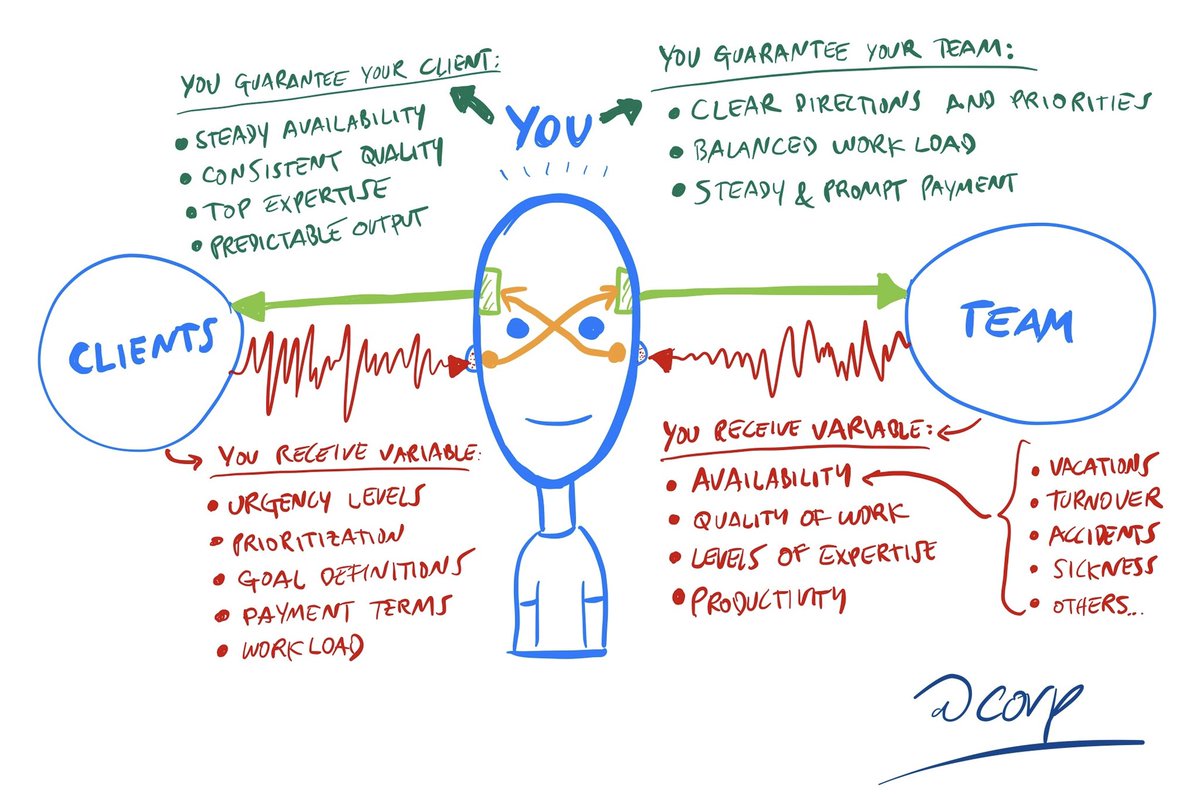 YOU GUARANTEE YOUR CLIENT:
• STEADY AVAILABILITY
• CONSISTENT QUALITY
• TOP EXPERTISE
• PREDICTABLE OUTPUT
YOU
YOU GUARANTEE YOUR TEAM:
• CLEAR DIRECTIONS AND PRIORITIES
• BALANCED WORKLOAD
• STEADY & PROMPT PAYMENT
CLIENTS
TEAM
YOU RECEIVE VARIABLE:
• URGENCY LEVELS
• PRIORITIZATION
• GOAL DEFINITIONS
• PAYMENT TERMS
• WORKLOAD
YOU RECEIVE VARIABLE:
• AVAILABILITY
• QUALITY OF WORK
• LEVELS OF EXPERTISE
• PRODUCTIVITY
• VACATIONS
• TURNOVER
• ACCIDENTS
• SICKNESS
• OTHERS...